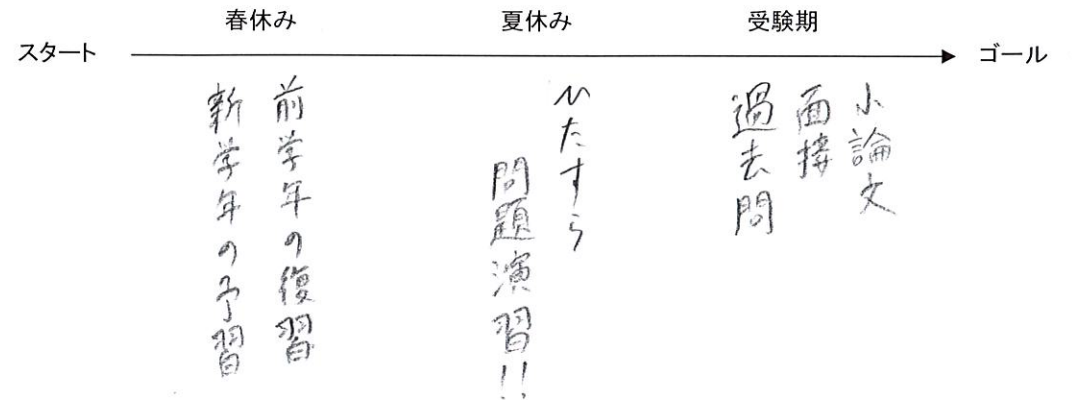 春休み
夏休み
受験期
スタート
ゴール
前学年の復習
新学年の予習
ひたすら
問題演習!!
小論文
面接
過去問